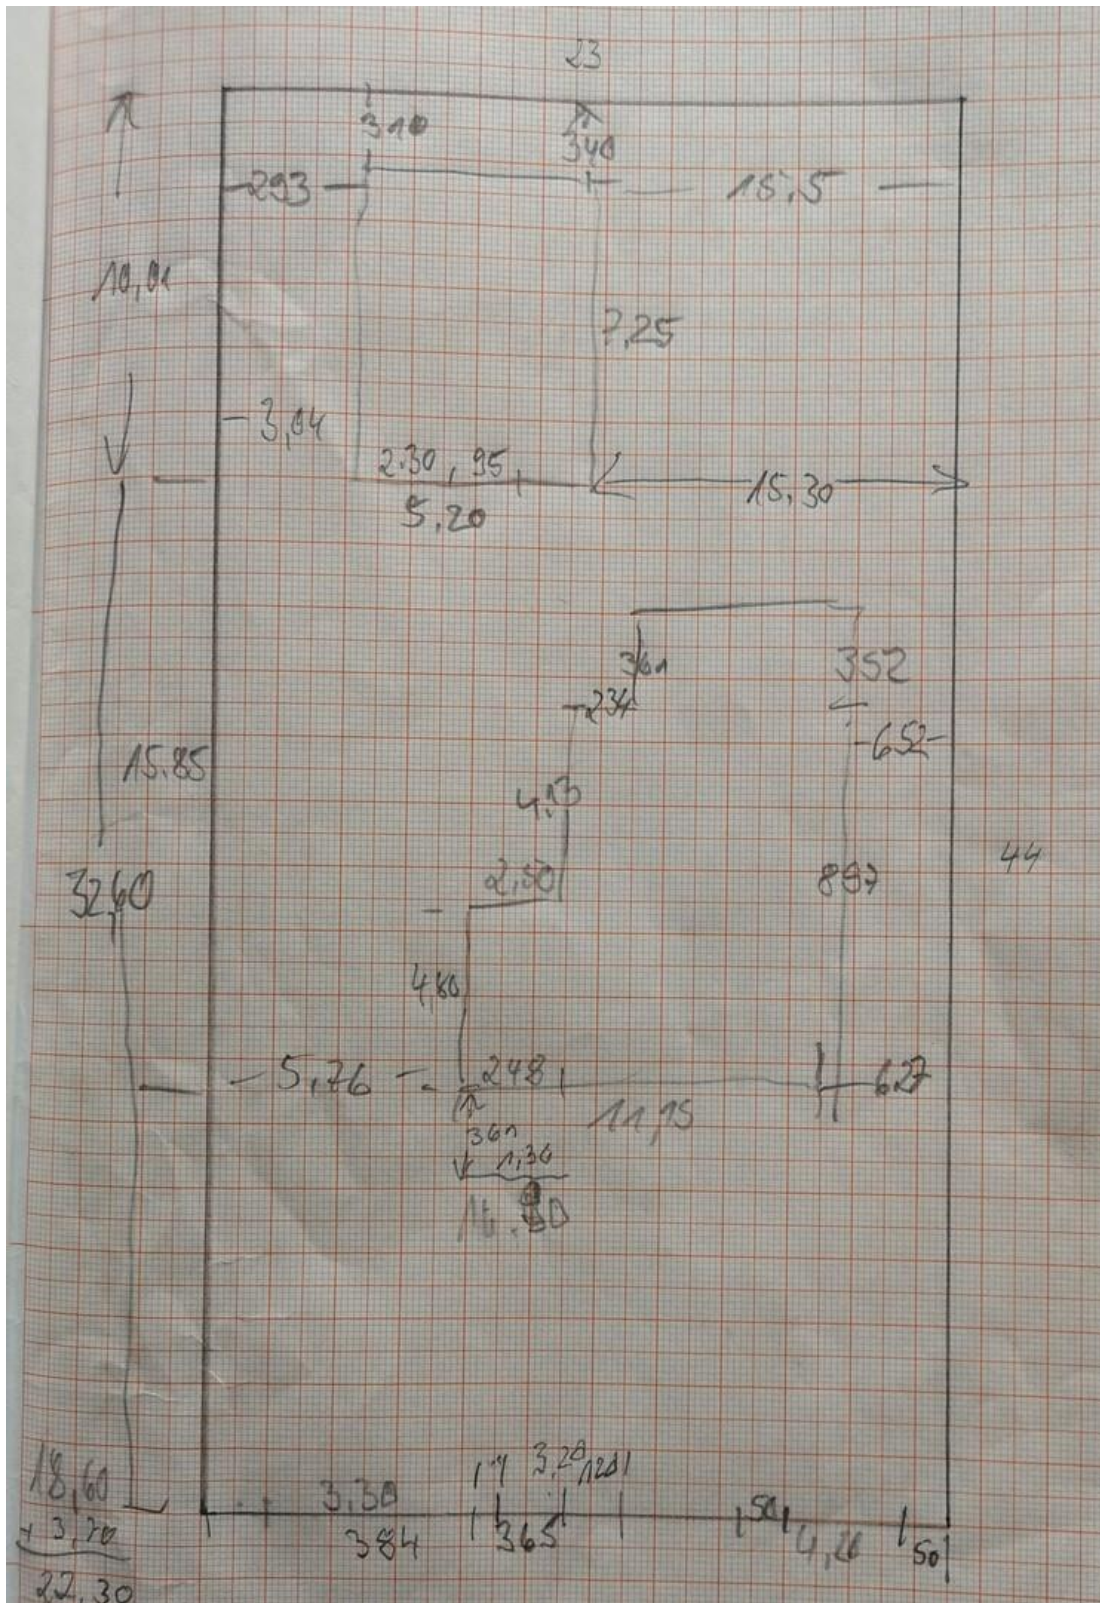 23
310
340
293
15,5
10,01
7,25
3,04
2.30, 95
5,20
15,30
361
352
234
652
15.85
4,13
2,50
897
44
3260
4,80
5,76
248
627
11,15
361
1,36
18,60
3,30
3,20
120
50
+ 3,70
384
365
4,20
50
22,30